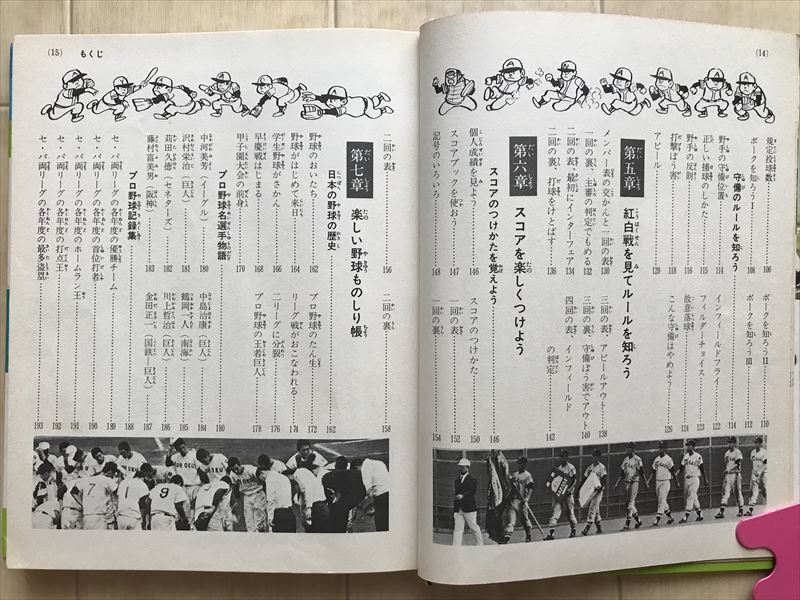 (14)
規定投球数……106
ボークを知ろうⅠ……108
ボークを知ろうⅡ……110
ボークを知ろうⅢ……112
守備のルールを知ろう……114
野手の守備位置……114
正しい捕球のしかた……115
野手の反則……116
打撃ぼう害……118
アピール……120
インフィールドフライ……122
フィルダーチョイス……123
故意落球……124
こんな守備はやめよう……126
第五章 紅白戦を見てルールを知ろう
メンバー表の交かんと一回の表……130
一回の裏、主審の判定でもめる……132
二回の表、最初にインターフェア……134
二回の裏、打球をけとばす……136
三回の表、アピールアウト……138
三回の裏、守備ぼう害でアウト……140
四回の表、インフィールドの判定……142
第六章 スコアを楽しくつけよう
スコアのつけかたを覚えよう……146
個人成績を見よう……146
スコアブックを使おう……147
記号のいろいろ……148
スコアのつけかた……150
一回の表……152
一回の裏……154
(15) もくじ
二回の表……156
二回の裏……158
第七章 楽しい野球ものしり帳
日本の野球の歴史……162
野球のおいたち……162
野球がはじめて来日……164
学生野球がさかん……166
早慶戦はじまる……168
甲子園大会の前身……170
プロ野球のたん生……172
リーグ戦がおこなわれる……174
二リーグに分裂……176
プロ野球の王者巨人……178
プロ野球名選手物語……180
中河美芳(イーグル)……180
沢村栄治(巨人)……181
苅田久徳(セネタース)……182
藤村富美男(阪神)……183
中島治康(巨人)……184
鶴岡一人(南海)……185
川上哲治(巨人)……186
金田正一(国鉄―巨人)……187
プロ野球記録集……188
セ・パ両リーグの各年度の優勝チーム……189
セ・パ両リーグの各年度の首位打者……190
セ・パ両リーグの各年度のホームラン王……191
セ・パ両リーグの各年度の打点王……192
セ・パ両リーグの各年度の最多盗塁……193